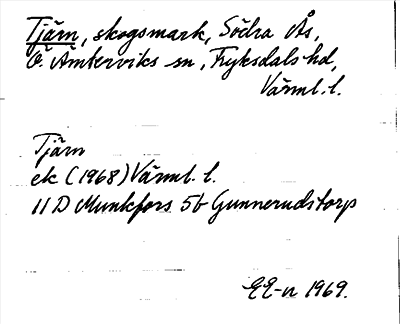 Tjärn, skogsmark, Södra Ås,
Ö. Ämterviks sn, Fryksdals hd,
Värml. l.
Tjärn
ek (1968) Värml. l.
11 D Munkfors 5b Gunnerudstorp
EE-n 1969.